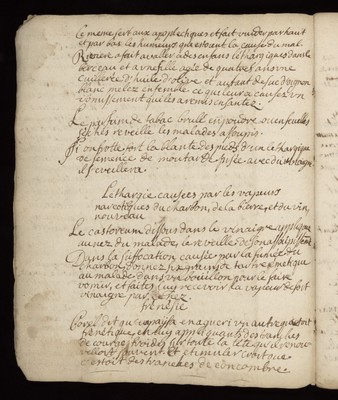 Le mesme sert aux apoplectiques et fait vuider par haut
et par bas les humeurs qui estoient la cause du mal.
Riviere a fait avaller a des enfans letharqiques dans le
berceau et a une fille agee de quatre ans une
cuilleree d'huile d'olive et autant de suc d'oignon
blanc meslez ensemble ce qui leur a causez un
vomissement qui les a remis en santez
Le parfum de tabac brulé en poudre ou en feuilles
seches reveille les malades assoupis.
Si on frotte fort la plante des pieds d'un letharqique
de semence de moutarde pilée avec du vinaigre
il s'eveillera.
Letharqie causees par les vapeurs
narcotiques du charbon, de la biere, et du vin
nouveau
Le castoreum dissous dans le vinaigre appliqué
au nez du malade, le reveille de son assoupissement
Dans la suffocation causée par la fumée du
charbon donnez six grains de tartre emetique
au malade dans un bouillon pour le faire
vomir, et faites luy recevoir la vapeur de fort
vinaigre par le nez.
frenesie
Borel dit qu'un a gueri un autre qui estoit
frenetique, en luy appliquant des
de courge froides sur toute la teste qu'il renou
velloit souvent, et
c'estoit des tranches de concombre.